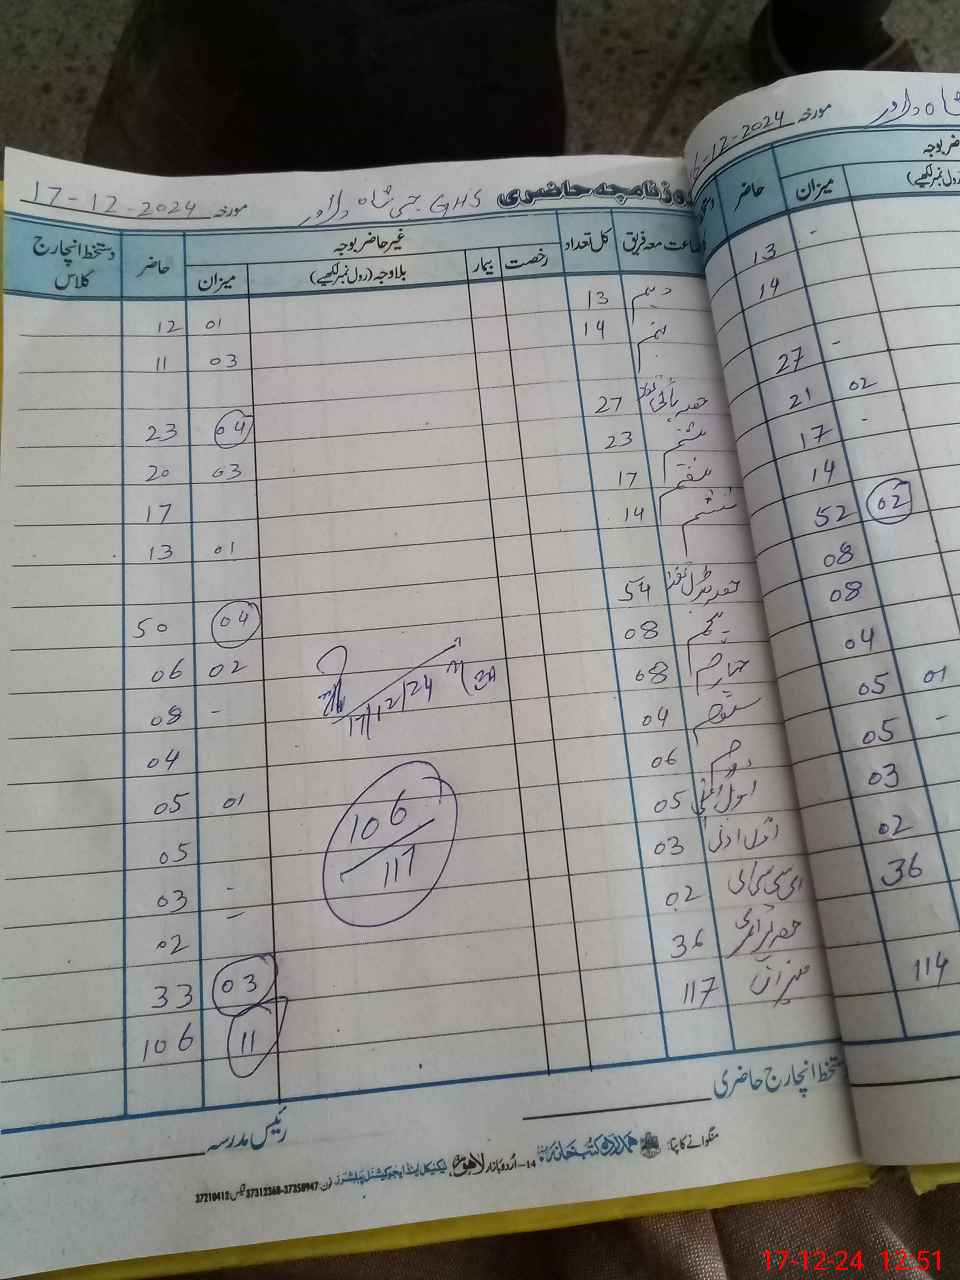 روزنامچہ حاضری GHS جسی شاہ داور مورخہ 17-12-2024
جماعت معہ فریق کل تعداد رخصت بیمار غیر حاضر بوجہ بلاوجہ (رول نمبر لکھیے) میزان حاضر دستخط انچارج کلاس
دہم 13 01 12
نہم 14 03 11
27 04 23
ہشتم 23 03 20
ہفتم 17 17
ششم 14 01 13
حصہ مڈل تعداد 54 04 50
پنجم 08 02 06
چہارم 08 - 08
سوئم 04 04
دوم 06 01 05
اول اعلیٰ 05 05
اول ادنیٰ 03 - 03
ای سی سی ای 02 - 02
حصہ پرائمری 36 03 33
میزان 117 11 106
17/12/24
106
117
دستخط انچارج حاضری
رئیس مدرسہ
منگوانے کا پتہ: ہمدرد کتب خانہ 14-اردو بازار لاہور ٹیکنیکل اینڈ ایجوکیشنل پبلشرز فون: 37350947-37312360 فیکس: 37210412
شاہ داور مورخہ 16-12-2024
حاضر بوجہ
(رول نمبر لکھیے) میزان حاضر
- 13
14
- 27
02 21
- 17
14
02 52
08
08
04
01 05
- 05
03
02
36
114
17-12-24 12:51